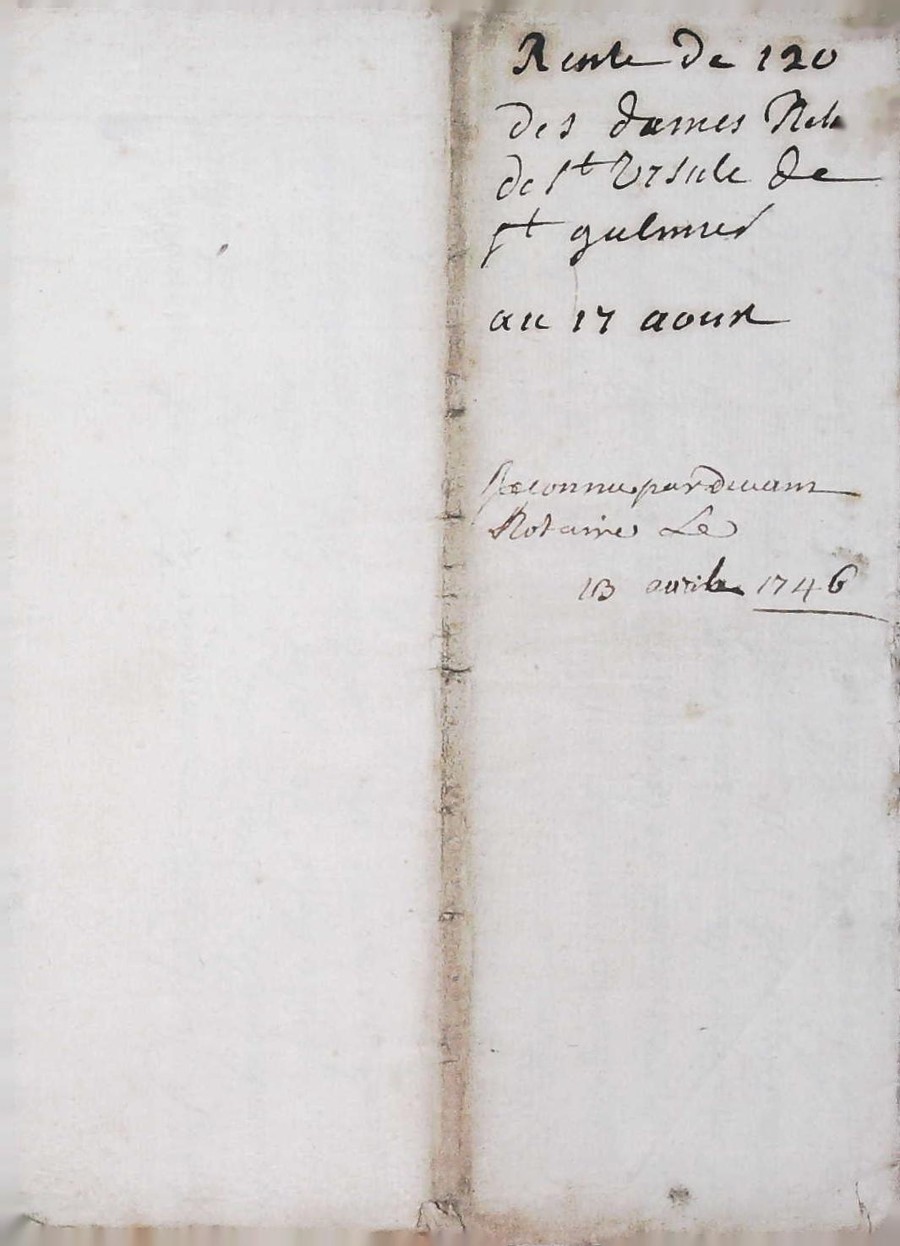 Rente de 120
des dames Rel
de st Ursule de
st galmier
au 17 aoust
Reconnu pardevant
Notaire Le
13 avril 1746